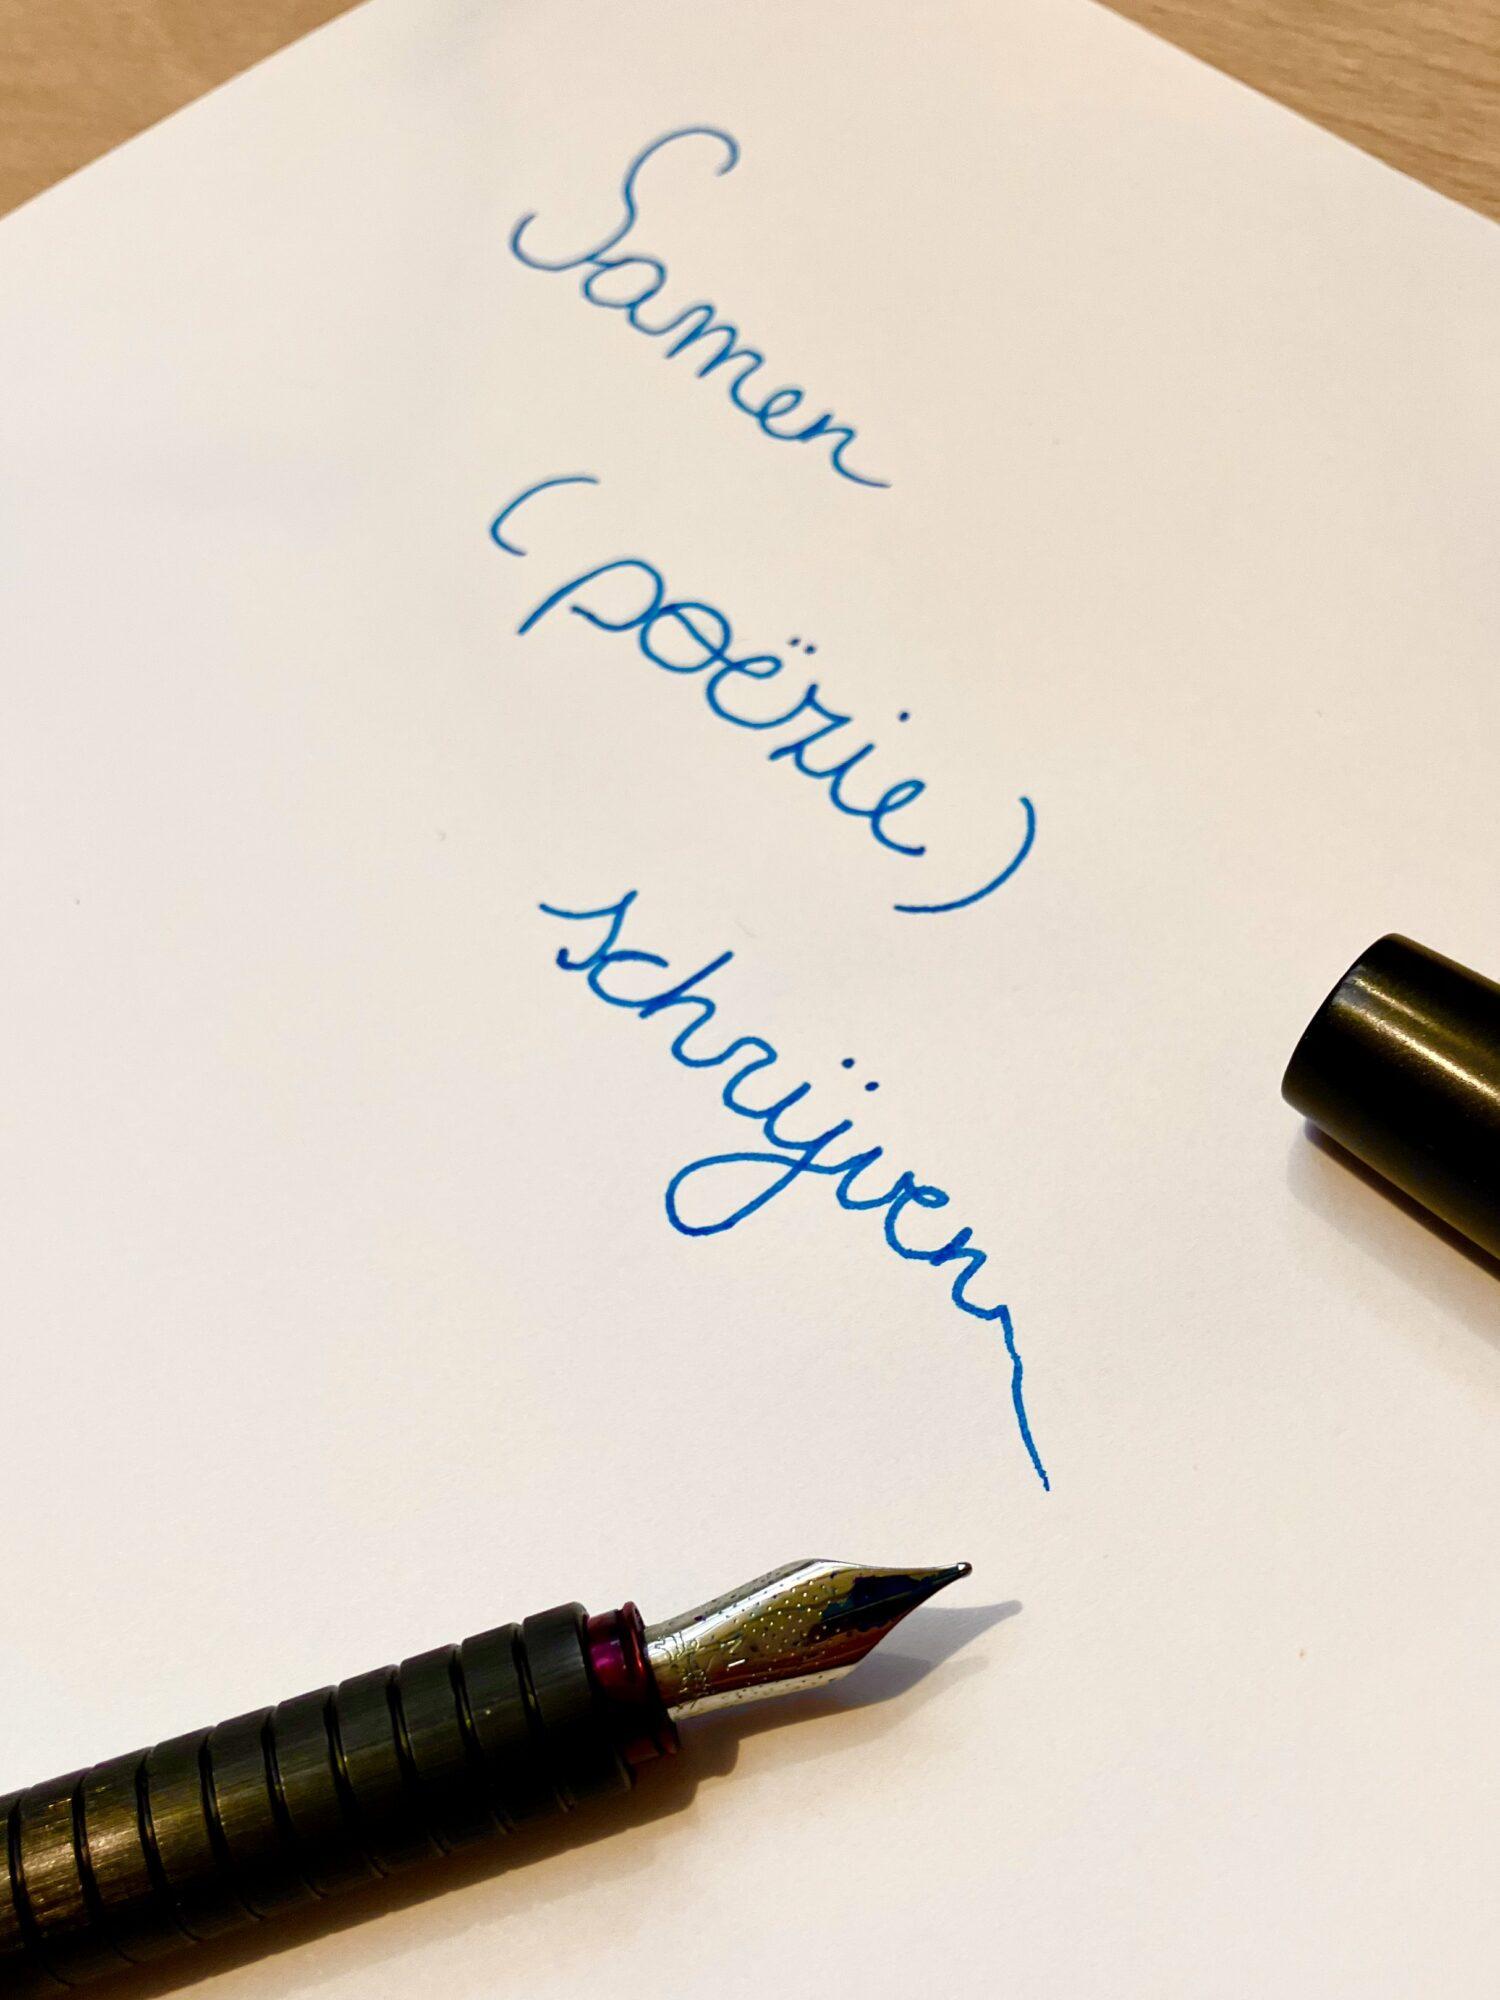 Samen
(poëzie)
schrijven